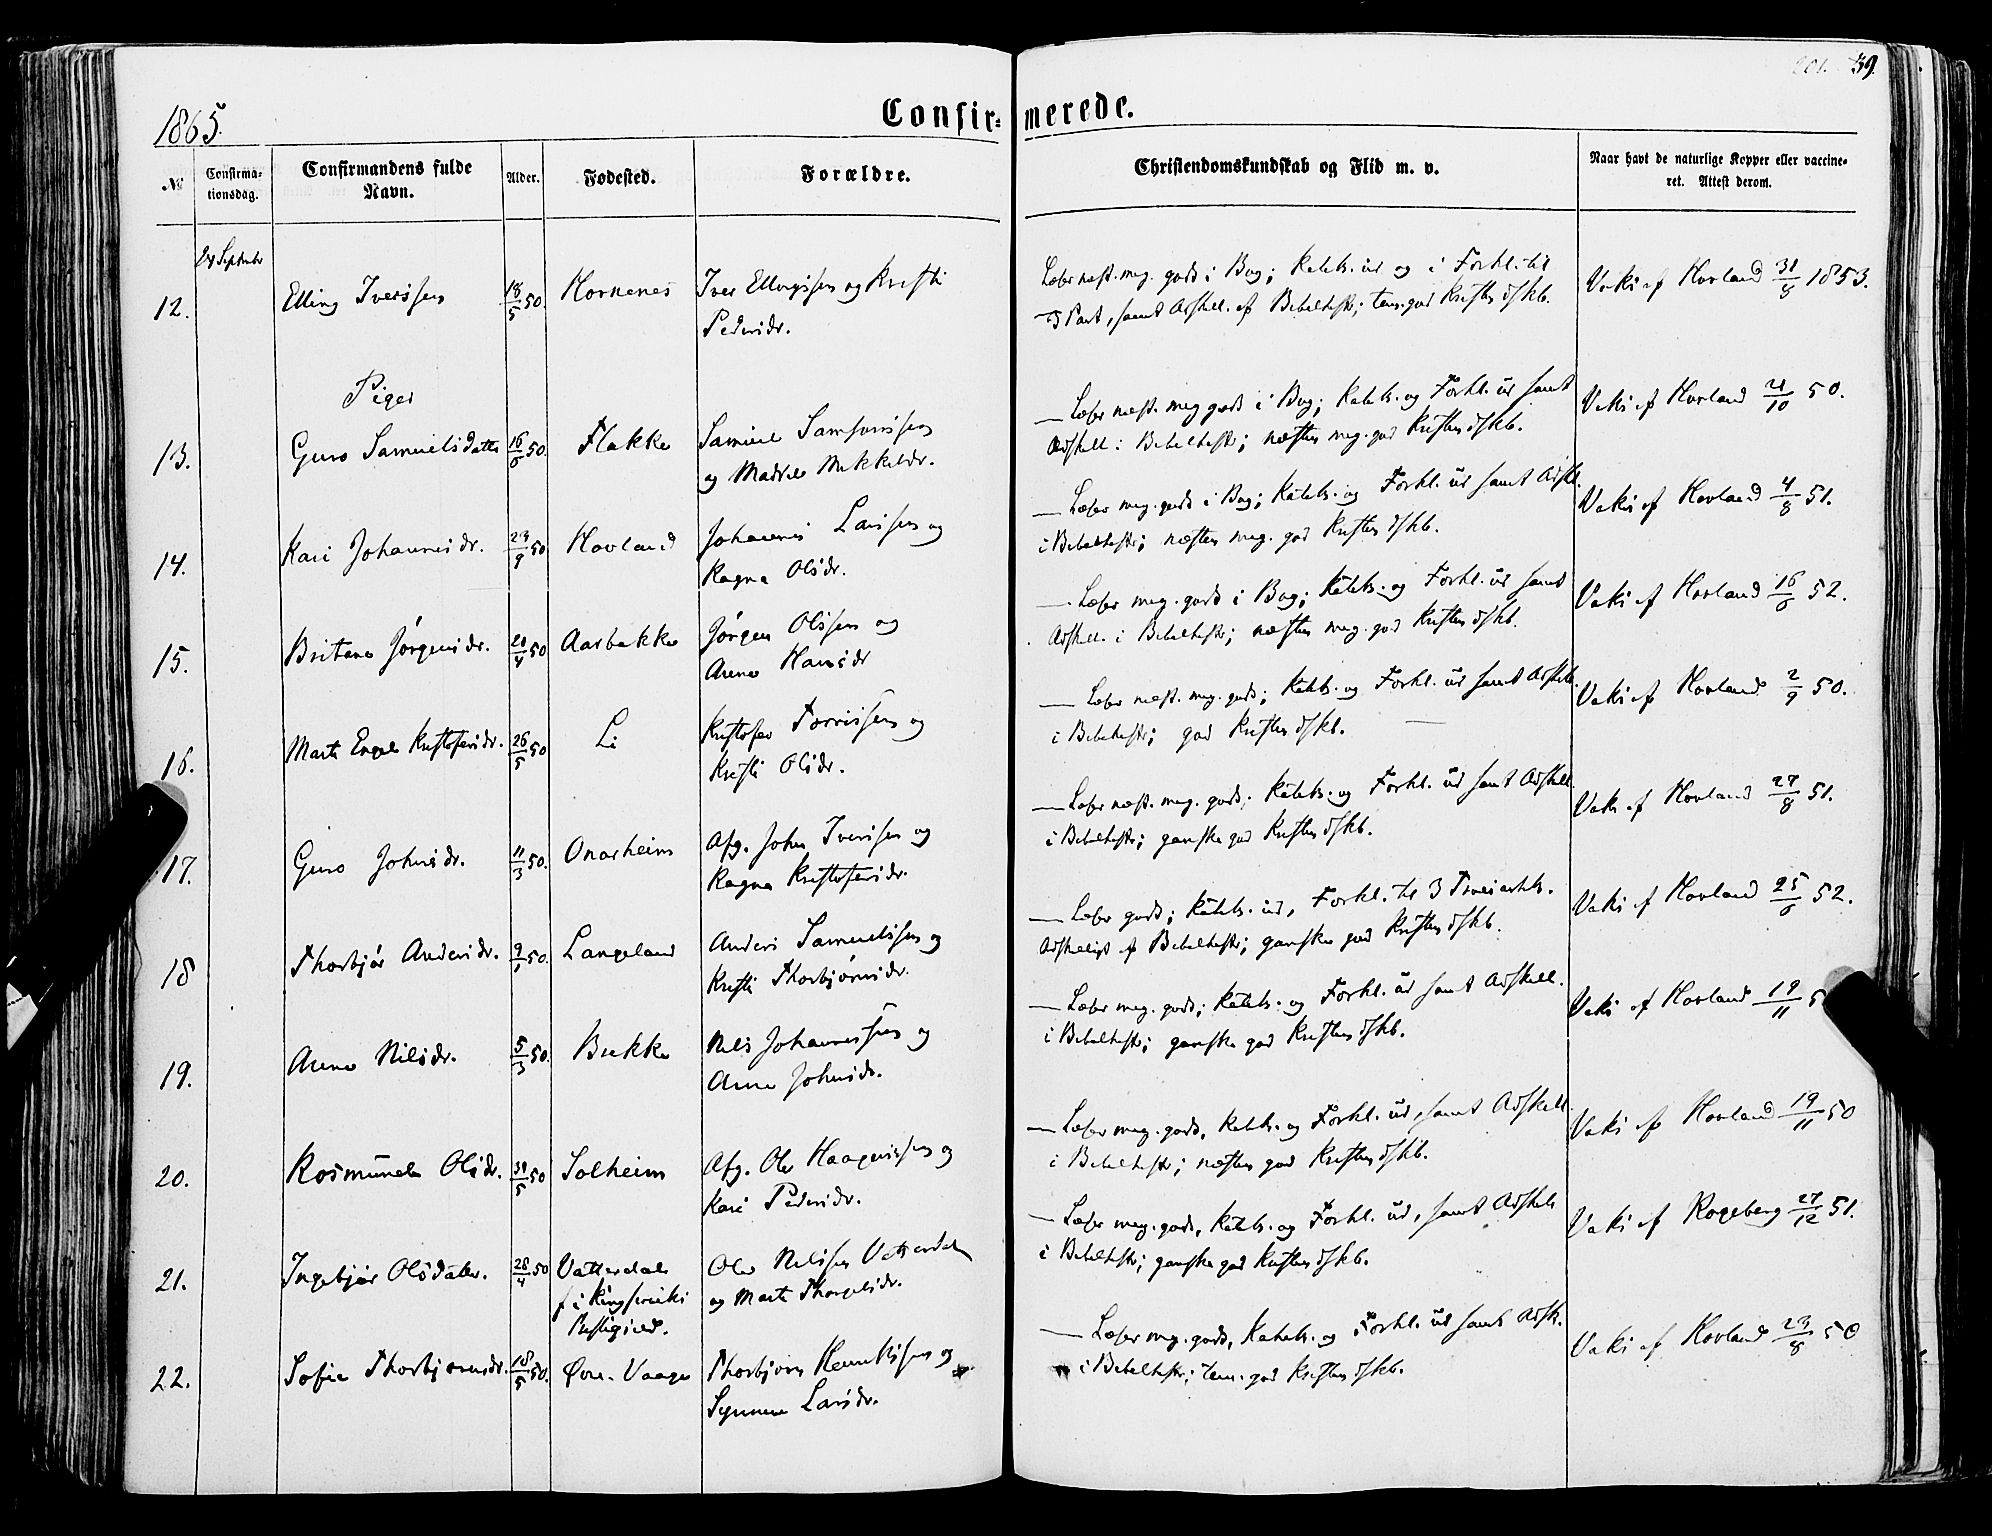 201. 59.
1865.
Confir- merede.
№
Confirma-
tionsdag.
Confirmandens fulde
Navn.
Alder.
Fødested.
Forældre.
Christendomskundskab og Flid m. v.
Naar havt de naturlige Kopper eller vaccine-
ret. Attest derom.
24 September
12. Elling Iverssen 18/5 50 Hornenes Iver Ellingssen og Kristi
Pedersdr.
Læser næst. meg. godt i Bog; Katek. ud og i Forkl. til
3 Part, samt Adskill. af Bibelhistr; tem. god Kristendskb.
Vaks af Hovland 31/8 1853.
Piger
13. Guro Samuelsdatter 16/6 50. Flakke Samuel Samsonssen
og Madele Mikkelsdr.
— Læser næst. meg godt i Bog; Katek. og Forkl. ud samt
Adskill. i Bibelhistr; næsten meg. god Kristendskb.
Vaks af Hovland 21/10 50.
14. Kari Johannesdr. 23/9 50 Hovland Johannes Larssen og
Ragna Olsdr.
— Læser meg. godt i Bog; Katek. og Forkl. ud samt Adskl.
i Bibelhistr; næsten meg. god Kristendskb.
Vaks af Hovland 4/8 51.
15. Britana Jørgensdr. 20/4 50 Aarbakke Jørgen Olssen og
Anna Hansdr
— Læser meg. godt i Bog; Katek. og Forkl. ud samt
Adskill. i Bibelhistr; næsten meg. god Kristendskb.
Vaks af Hovland 16/6 52.
16. Marta Engel Kristofersdr. 26/5 50 Li Kristofer Torrissen og
Kristi Olsdr.
— Læser næst. meg. godt; Katek. og Forkl. ud samt Adskill.
i Bibelhistr; god Kristendskb. —
Vaks af Hovland 2/9 50.
17. Guro Johnsdr. 11/3 50. Onarheim Afg. John Iverssen og
Ragna Kristofersdr.
— Læser næst. meg. godt; Katek. og Forkl. ud samt Adskill.
i Bibelhistr; ganske god Kristendskb.
Vaks af Hovland 27/8 51.
18 Thorbjør Andersdr. 50. Langeland Anders Samuelssen og
Kristi Thorbjørnsdr.
— Læser godt; Katek. ud, Forkl. til 3 Troesartk.
Adskelligt af Bibelhistr; ganske god Kristendskb.
Vaks af Hovland 25/6 52.
19. Anna Nilsdr. 5/3 50. Bukke Nils Johannessen og
Anna Johnsdr.
— Læser meg. godt; Katek. og Forkl. ud samt Adskill.
i Bibelhistr; ganske god Kristendskb.
Vaks af Hovland 19/11 5
20. Rosmunda Olsdr. 31/5 50 Solheim Afg. Ole Haagenssen og
Kari Pedersdr.
— Læser meg. godt, Katek. og Forkl. ud, samt Adskill.
i Bibelhistr; næsten god Kristendskb.
Vaks af Hovland 19/11 50
21. Ingebjør Olsdatter. 28/4 50 Vatterdal Ole Nilssen Vatterdal
og Marta Thorgelsdr.
Prestegjeld.
— Læser meg. godt, Katek. og Forkl. ud, samt Adskill.
i Bibelhistr; ganske god Kristendskb.
Vaks af Rogeberg 27/12 51.
22. Sofia Thorbjørnsdr. 18/5 50. Øvre-Vaage Thorbjørn Henrikssen og
Synneva Larsdr.
— Læser meg. godt, Katek. og Forkl. ud samt Adsk.
i Bibelhistr; tem. god Kristendskb.
Vaks af Hovland 23/8 50